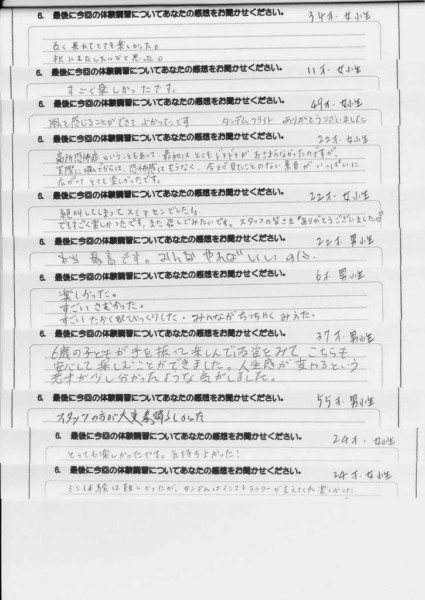 6. 最後に今回の体験講習についてあなたの感想をお聞かせください。 34才・女性
長く乗れてとても楽しかった。
6. 最後に今回の体験講習についてあなたの感想をお聞かせください。 11才・女性
すごく楽しかったです。
6. 最後に今回の体験講習についてあなたの感想をお聞かせください。 49才・女性
風を感じることができてよかったです タンデムフライト ありがとうございました
6. 最後に今回の体験講習についてあなたの感想をお聞かせください。 22才・女性
高所恐怖症ということもあって最初はとてもドキドキがおさまらなかったのですが、
実際に飛んでからは、恐怖感はもうなく、今まで見たことのない景色がいっぱいに
広がってとても楽しかったです。
6. 最後に今回の体験講習についてあなたの感想をお聞かせください。 22才・女性
絶叫してしまってスミマセンでした!!
でもすごく楽しかったです。また来てみたいです。スタッフの皆さまありがとうございました♡
6. 最後に今回の体験講習についてあなたの感想をお聞かせください。 22才・男性
最高です。みんなやればいいのに。
6. 最後に今回の体験講習についてあなたの感想をお聞かせください。 6才・男性
楽しかった。
すごいさむかった。
すごいたかくてびっくりした。みんながちっちゃくみえた。
6. 最後に今回の体験講習についてあなたの感想をお聞かせください。 37才・男性
6歳の子どもが手を振って楽しんでいる姿をみて、こちらも
安心して楽しむことができました。人生感が変わるという
意味が少し分かったような気がしました。
6. 最後に今回の体験講習についてあなたの感想をお聞かせください。 55才・男性
スタッフの方が大変素晴らしかった
6. 最後に今回の体験講習についてあなたの感想をお聞かせください。 24才・女性
とっても楽しかったです。気持ちよかった!
6. 最後に今回の体験講習についてあなたの感想をお聞かせください。 24才・女性
体験は難しかったが、タンデムはインストラクターが